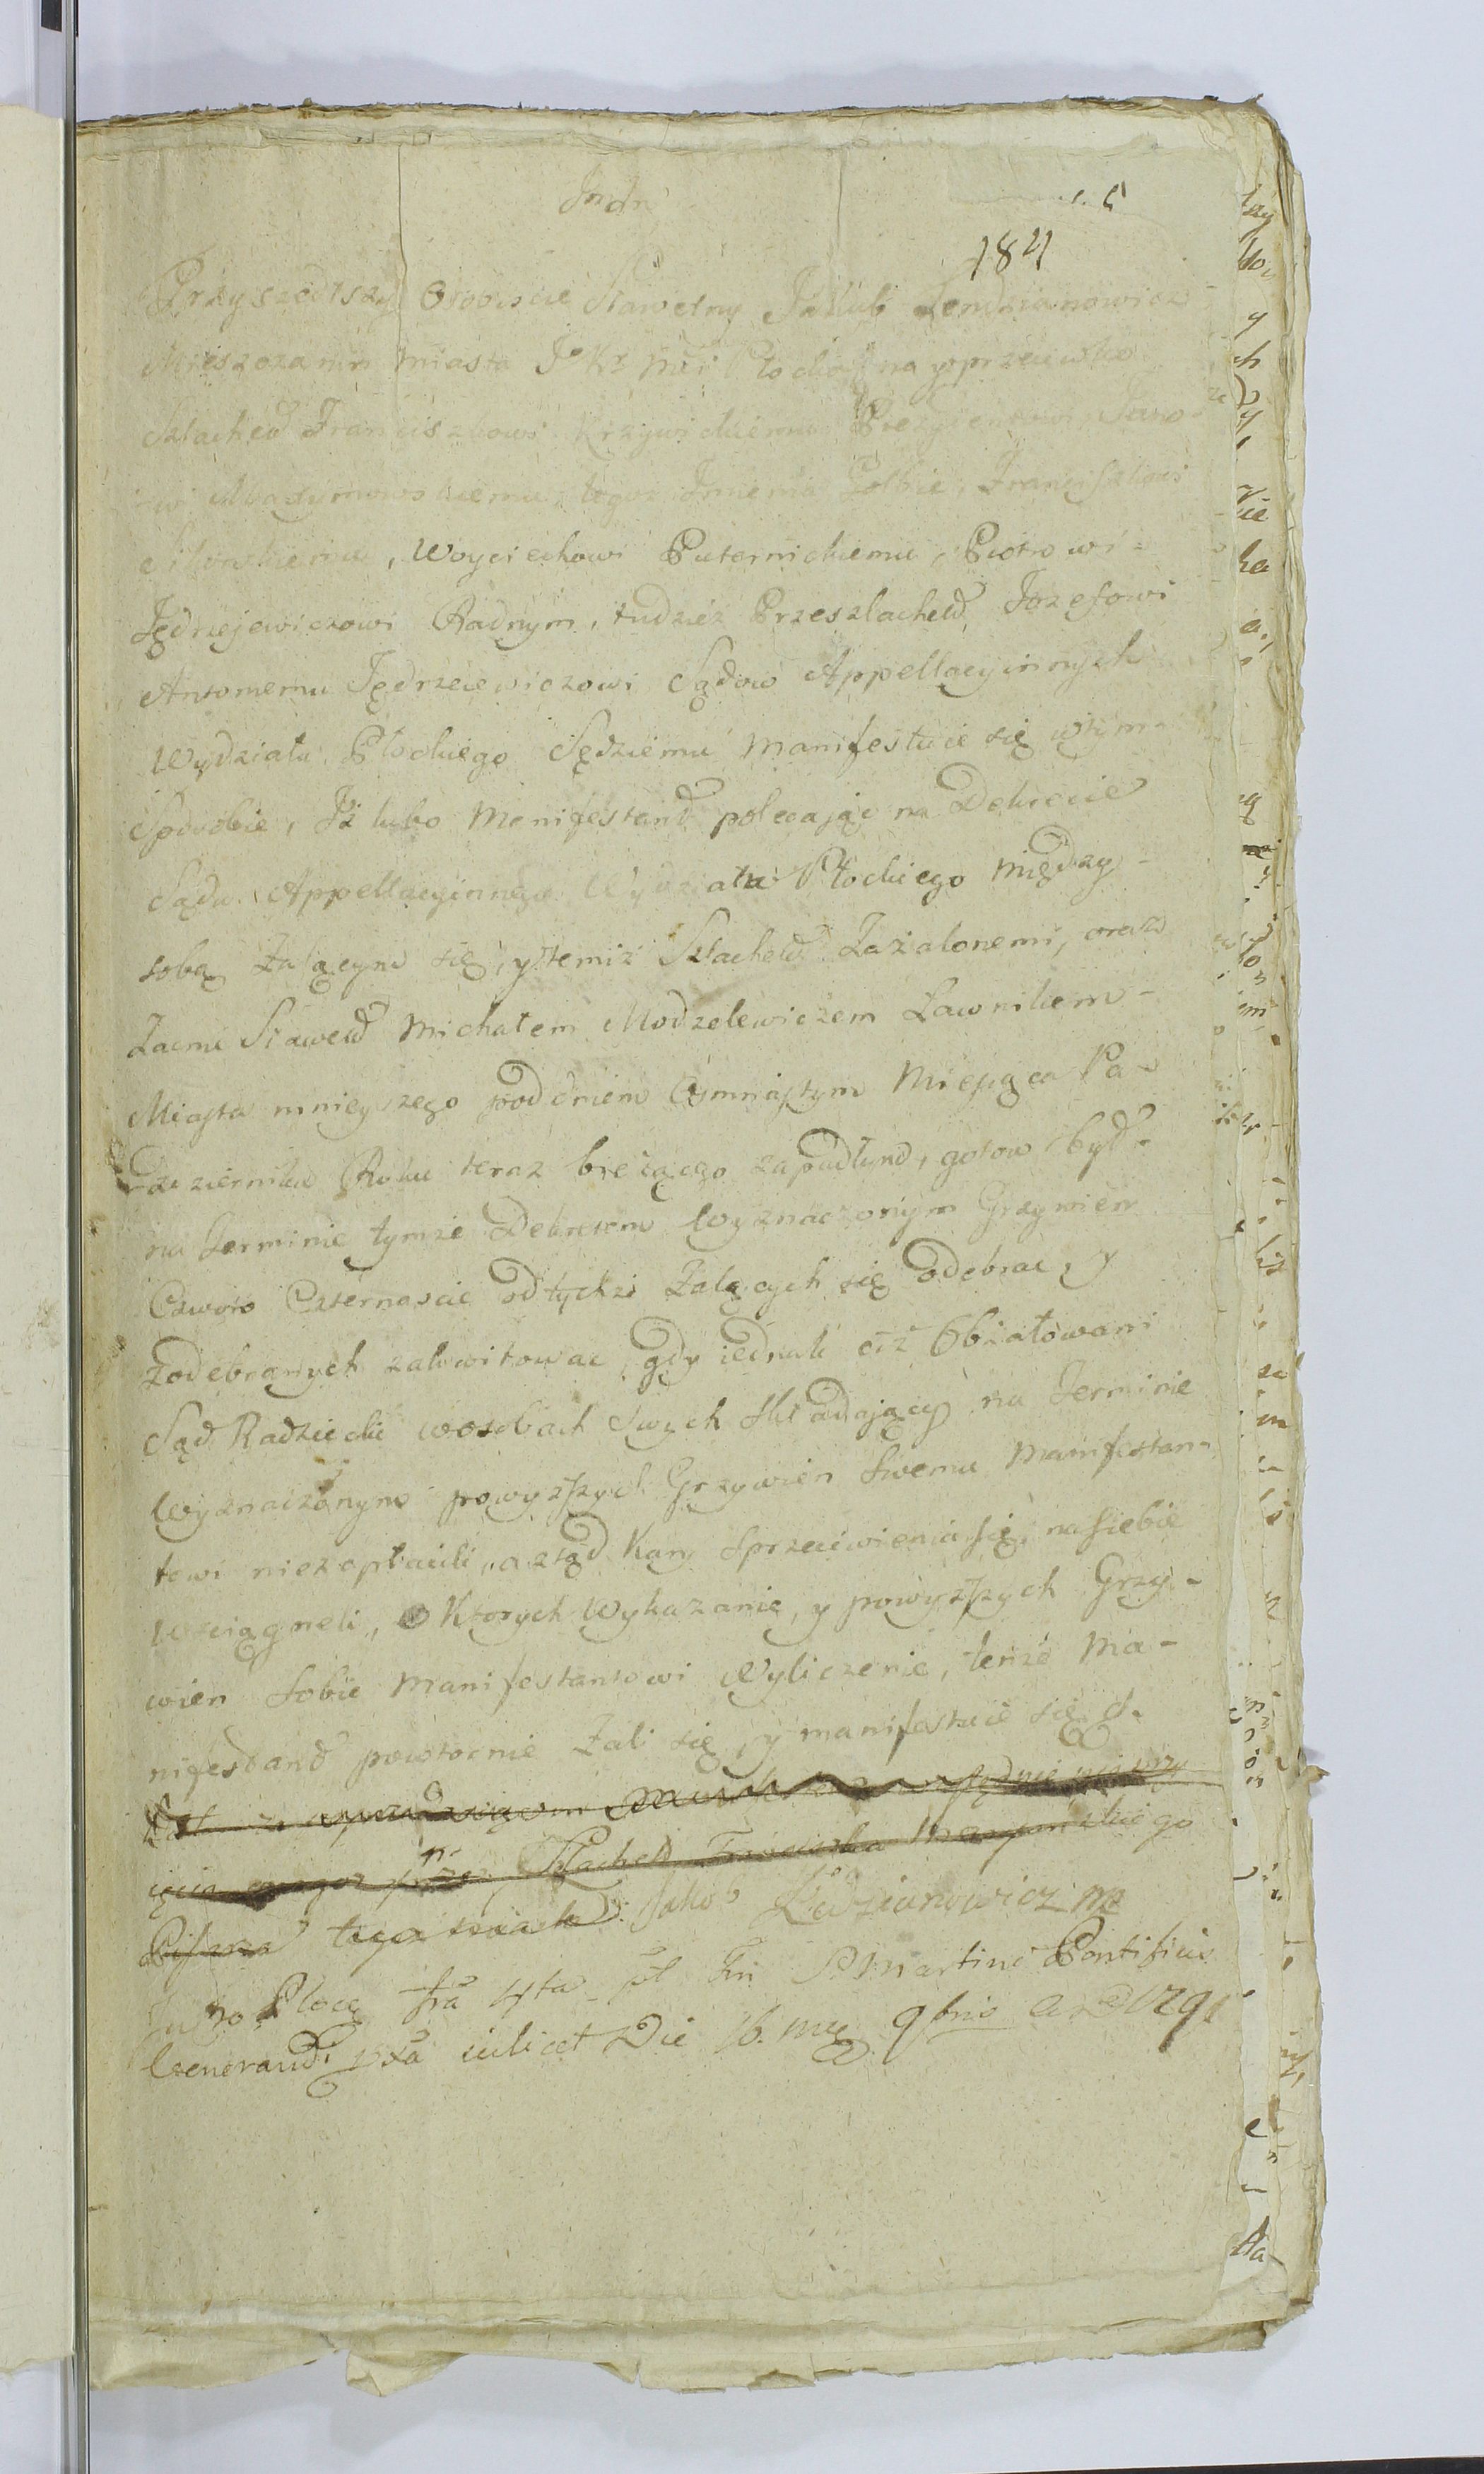 Indn
184
Przyszedłszy Osobiscie Sławetny Jakub Lendzianowicz
Mieszczanin Miasta Jo Kr Mci Płocka na przeciwko
Szlachetd Franciszkowi Krzywickiemu Prezydentowi, Jano-
wi Maxymowskiemu, tegoz Imienia Franciszkowi
Woyciechowi Puternickiemu, Piotrowi =
Jędrzejewiczowi Radnym, tudzież Przeszlachetd Jozefowi
Antoniemu Jędrzeiewiczowi Sądow Appellacyinnych
Wydziału Płockiego Sędziemu manifestuie się wtym
Sposobie, Iż lubo Menifestand polecając na Dekrecie
Sądu Appellacyinnego Wydziału Płockiego między -
sobą Zalącym się, y temiz Szlachetd Zażalonemi, oraz
Sławetd Michałem Modzelewiczem Ławnikem -
Miasta mnieyszego pod dniem Osmnastym Miesiąca Pa -
zdziernika Roku teraz bieżącego zapadłym, gotow był
na Terminie tymże Dekretem Wyznaczonym Grzywien
Czworo Czternascie od tychże Zalących się odebrac, y
zodebranych zakwitowac, gdy iednak ciż Obżałowani
Sąd Radziecki wosobach Swych składający na Terminie
Wyznaczonym powyzszych Grzywien Swemu Manifestan-
towi niezapłacili, a ztąd Kary Sprzeciwienia się na siebie
wciągneli, o Ktorych Wykazanie, y powyzszych Grzy -
wien Sobie Manifestantowi Wyliczenie, tenże Ma -
nifestand powtornie Zali się, y manifestuie się
Szlachetd
Pisarza tego miasta Jakob Lędzianowicz mp
Płocę fra 4ta pt Fm S. Martini Pontificis
pxa scilicet Die 16. 9bris 1791